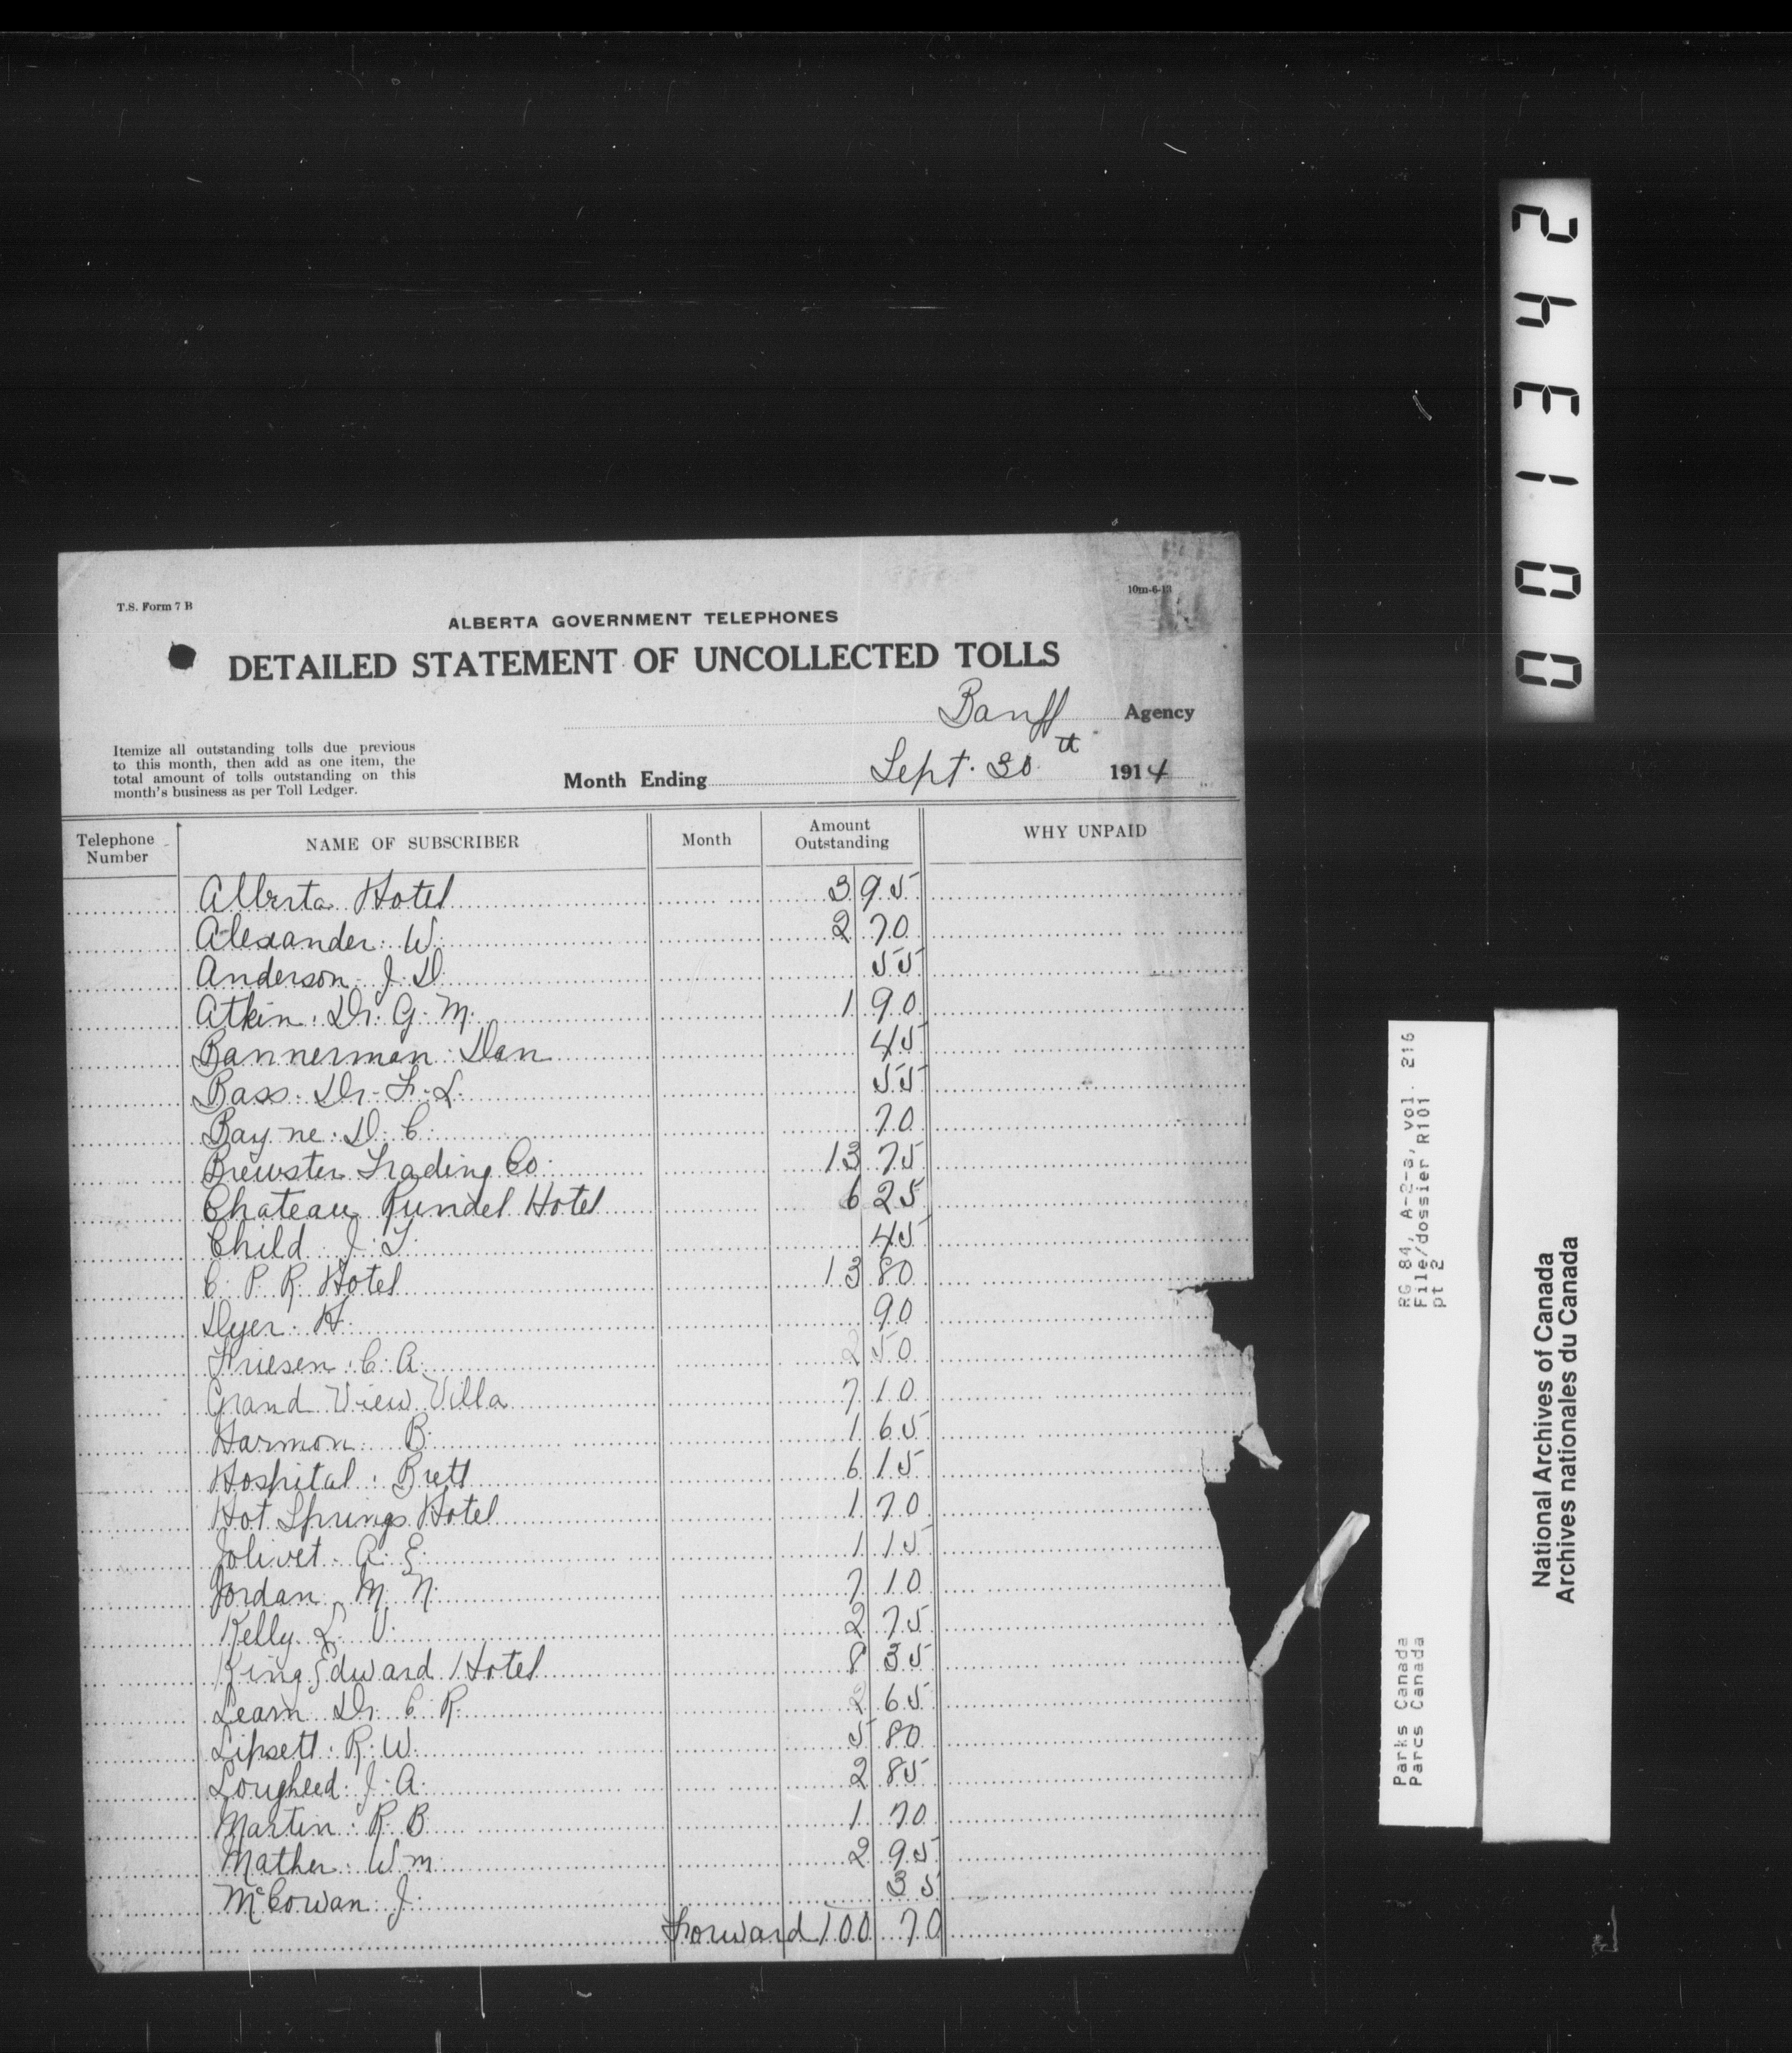 T.S. Form 7 B
10m-6-13
ALBERTA GOVERNMENT TELEPHONES
DETAILED STATEMENT OF UNCOLLECTED TOLLS
Banff Agency
Itemize all outstanding tolls due previous
to this month, then add as one item, the
total amount of tolls outstanding on this
month's business as per Toll Ledger.
Month Ending Sept. 30th 1914
Telephone Number NAME OF SUBSCRIBER Month Amount Outstanding WHY UNPAID
Alberta Hotel 3 95
Alexander. W. 2 70
Anderson J. D. 55
Atkin. Dr. G. M. 1 90
Bannerman. Dan 45
Bass. Dr. F. L. 55
Bayne. D. C. 70
Brewster Trading Co. 13 75
Chateau Rundel Hotel 6 25
Child J. T. 45
C. P. R. Hotel 13 80
Dyer. H. 90
Friesen. C. A. 2 50
Grand View Villa 7 10
Harmon. B. 1 65
Hospital. Brett 6 15
Hot Springs Hotel 1 70
Jolivet. A. E. 1 15
Jordan M. N. 7 10
Kelly. L. V. 2 75
King Edward Hotel 8 35
Learn Dr. C. R. 2 65
Lipsett. R. W. 5 80
Lougheed. J. A. 2 85
Martin. R. B. 1 70
Mather. Wm. 2 95
McCowan J. 35
Forward 100 70
001342
RG 84, A-2-a, vol. 216
File/dossier R101
pt 2
Parks Canada
Parcs Canada
National Archives of Canada
Archives nationales du Canada